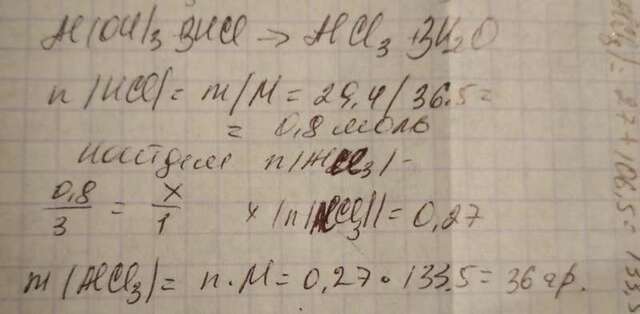 Al(OH)3 3HCl => AlCl3 3H2O
n/HCl/= m/M = 29,4/36.5=
= 0,8 моль
n/AlCl3/-
0,8/3 = x/1 x/n/AlCl3//= 0,27
m/AlCl3/= n·M= 0,27·133.5= 36 гр.
27+106,5= 133,5